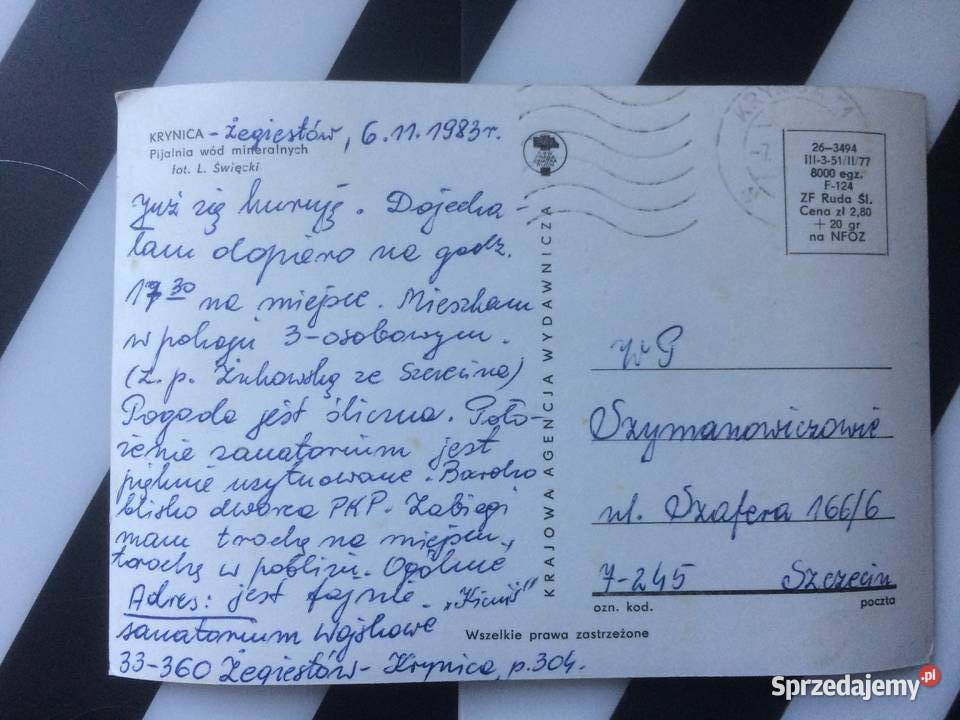 KRYNICA - Żegiestów, 6.11.1983 r.
Pijalnia wód mineralnych
fot. L. Święcki
Już się kuruję. Dojecha-
łam dopiero na godz.
17 30 na miejsce. Mieszkam
w pokoju 3-osobowym.
(z. p. Żukowską ze Szczecina)
Pogoda jest śliczna. Poło-
żenie sanatorium jest
pięknie usytuowane. Bardzo
blisko dworca PKP. Zabiegi
mam trochę na miejscu,
trochę w pobliżu. Ogólnie
Adres: jest fajnie. "Kicuś"
sanatorium Wojskowe
33-360 Żegiestów-Krynica, p.304.
KRAJOWA AGENCJA WYDAWNICZA
Wszelkie prawa zastrzeżone
26-3494
III-3-51/II/77
8000 egz.
F-124
ZF Ruda Śl.
Cena zł 2,80
+ 20 gr
na NFOZ
WP
Szymanowiczowie
ul. Szafera 166/6
7-245 Szczecin
ozn. kod. poczta
Sprzedajemy.pl